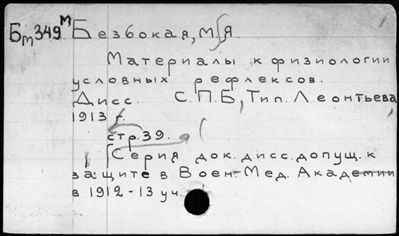 Бм349м Безбокая, М.Я.
Материалы к физиологии
условных рефлексов.
Дисс. С.П.Б, Тип. Леонтьева
1913 г.
стр. 39.
Серия док. дисс. допущ. к
защите в Воен-Мед. Академии
в 1912-13 уч.